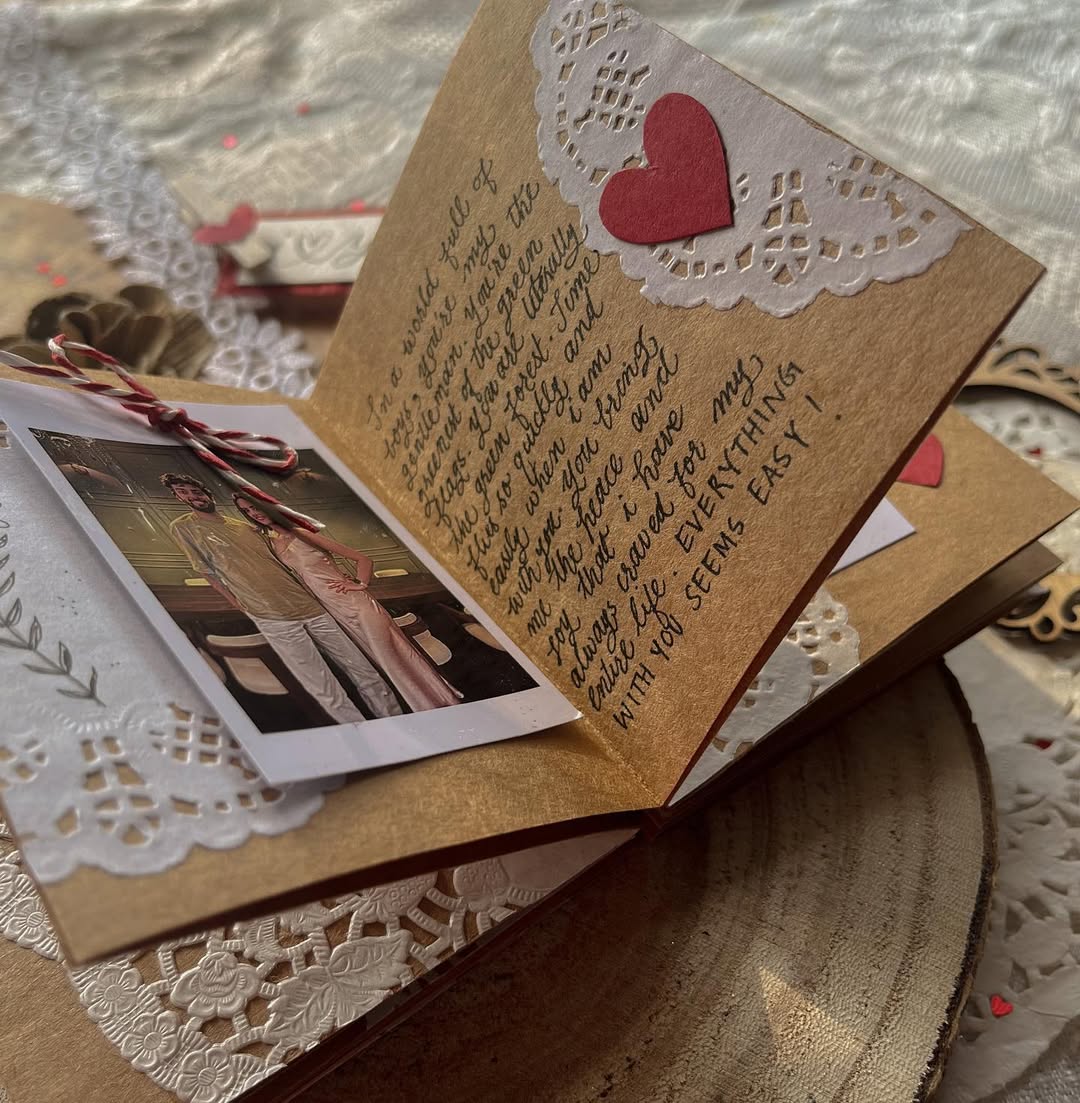 In a world full of
boys, you're my
gentleman. You're the
greenest of the green
flags. you are literally
the green forest. Time
flies so quickly and
easily when i am
with you. You bring
me the peace and
joy that i have
always craved for my
entire life. EVERYTHING
WITH YOU SEEMS EASY!